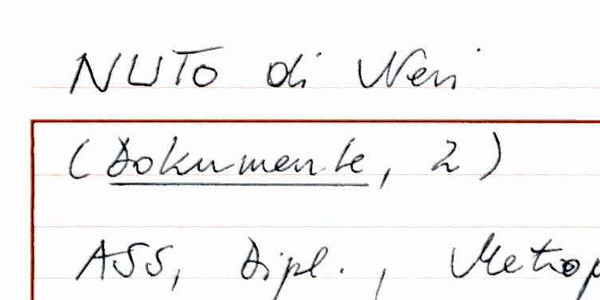 NUTO di Neri
(Dokumente, 2)
ASS, Dipl., Metrop